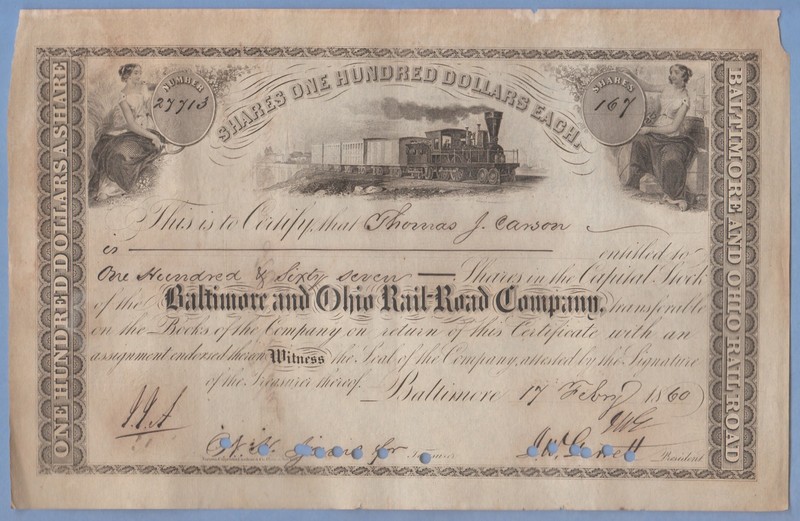 NUMBER
27713
SHARES ONE HUNDRED DOLLARS EACH.
SHARES
167
ONE HUNDRED DOLLARS A SHARE
BALTIMORE AND OHIO RAIL-ROAD
This is to Certify, that Thomas J. Carson
is entitled to
One Hundred & Sixty Seven Shares in the Capital Stock
of the Baltimore and Ohio Rail-Road Company, transferable
on the Books of the Company on return of this Certificate with an
assignment endorsed thereon. Witness the Seal of the Company, attested by the Signature
of the Treasurer thereof. Baltimore 17 Feby 1860
J. W. Garrett President